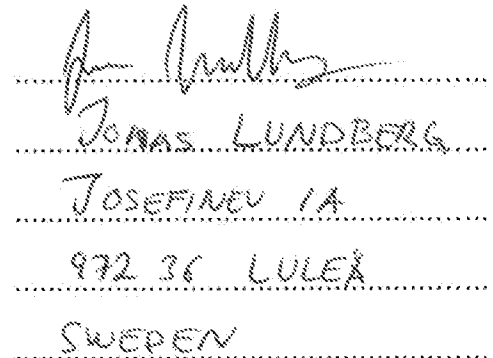 JONAS LUNDBERG
JOSEFINEV 1A
972 36 LULEÅ
SWEDEN